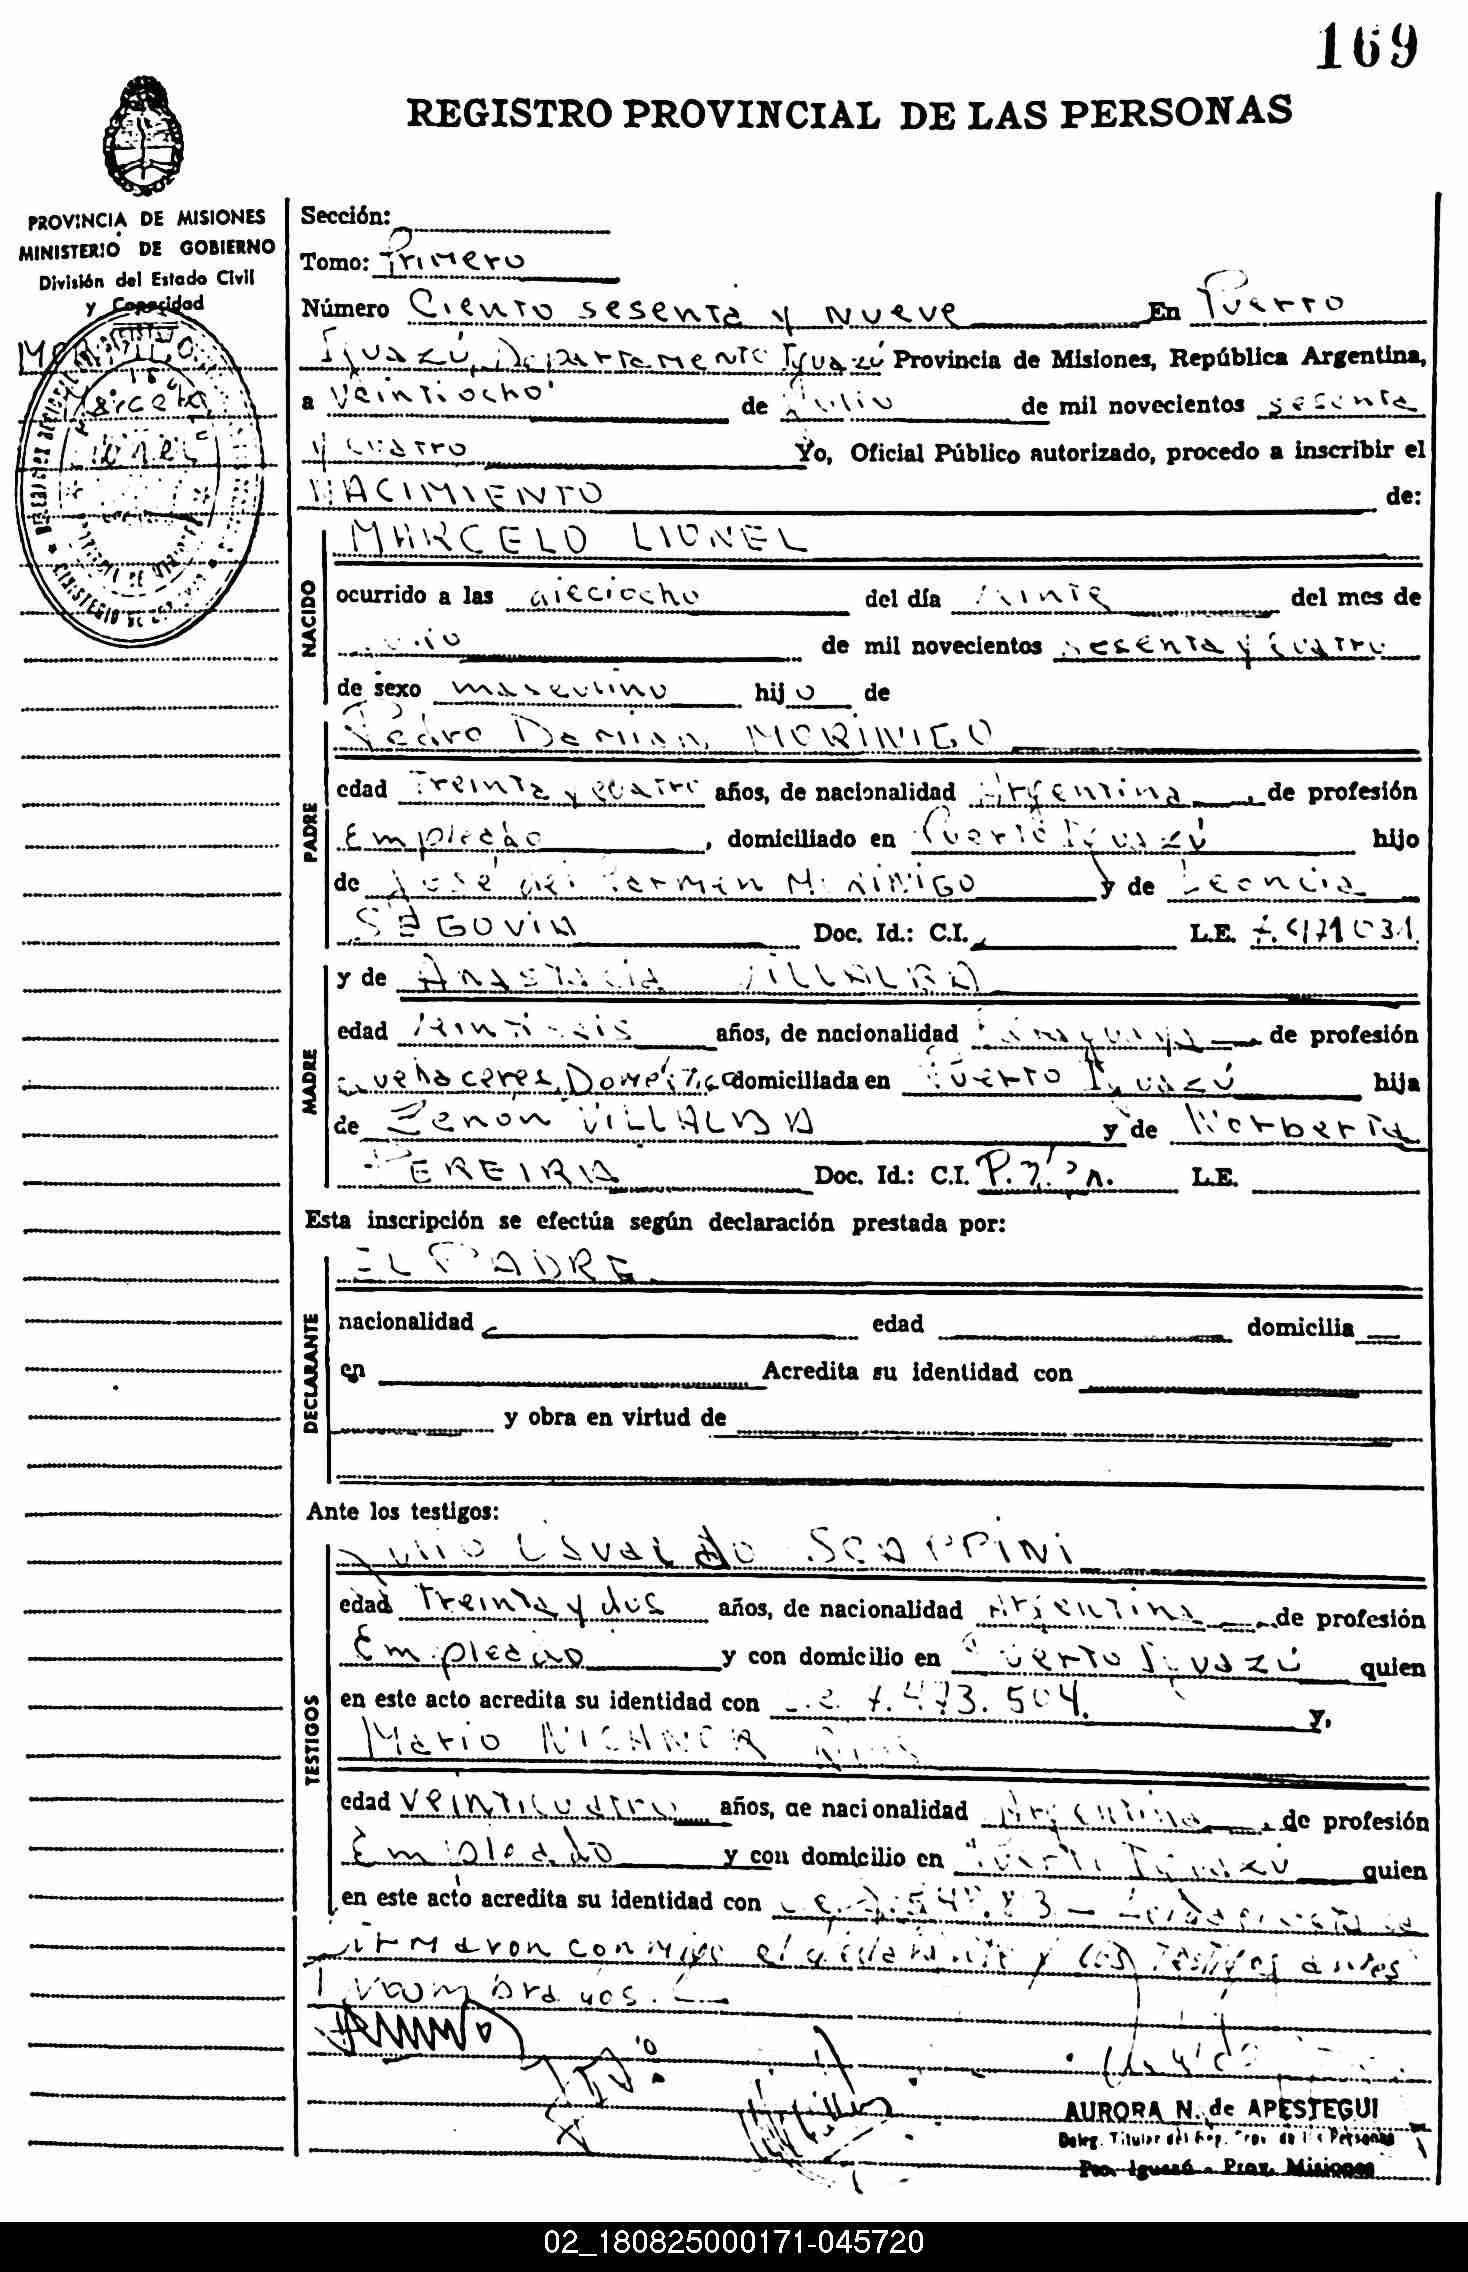 169
REGISTRO PROVINCIAL DE LAS PERSONAS
PROVINCIA DE MISIONES
MINISTERIO DE GOBIERNO
División del Estado Civil
y Capacidad
Marcelo
Lionel
Sección:
Tomo: Primero
Número Ciento sesenta y nueve En Puerto
Iguazú, Departamento Iguazú Provincia de Misiones, República Argentina,
a Veintiocho de Julio de mil novecientos sesenta
y cuatro Yo, Oficial Público autorizado, procedo a inscribir el
NACIMIENTO de:
NACIDO
MARCELO LIONEL
ocurrido a las dieciocho del día del mes de
de mil novecientos sesenta y cuatro
de sexo masculino hijo de
PADRE
Pedro Damian MORINIGO
edad Treinta y cuatro años, de nacionalidad Argentina, de profesión
Empleado, domiciliado en Puerto Iguazú hijo
de José del Carmen MORINIGO y de Leoncia
SEGOVIA Doc. Id.: C.I. L.E. 7.471031
MADRE
y de Anastacia VILLALBA
edad Veintiseis años, de nacionalidad Paraguaya de profesión
Quehaceres Domésticos domiciliada en Puerto Iguazú hija
de Zenón VILLALBA y de Norberta
PEREIRA Doc. Id.: C.I. L.E.
Esta inscripción se efectúa según declaración prestada por:
DECLARANTE
EL PADRE
nacionalidad edad domicilia
en Acredita su identidad con
y obra en virtud de
Ante los testigos:
TESTIGOS
Julio Osvaldo SCAPPINI
edad Treinta y dos años, de nacionalidad Argentina de profesión
Empleado y con domicilio en Puerto Iguazú quien
en este acto acredita su identidad con L.E. 7.473.504. y,
Mario
edad Veinticuatro años, de nacionalidad Argentina, de profesión
Empleado y con domicilio en Puerto Iguazú quien
en este acto acredita su identidad con
firmaron conmigo el declarante y los testigos antes
nombrados.
AURORA N. de APESTEGUI
Deleg. Titular del Reg. Prov. de las Personas
Pto. Iguazú - Prov. Misiones
02_180825000171-045720